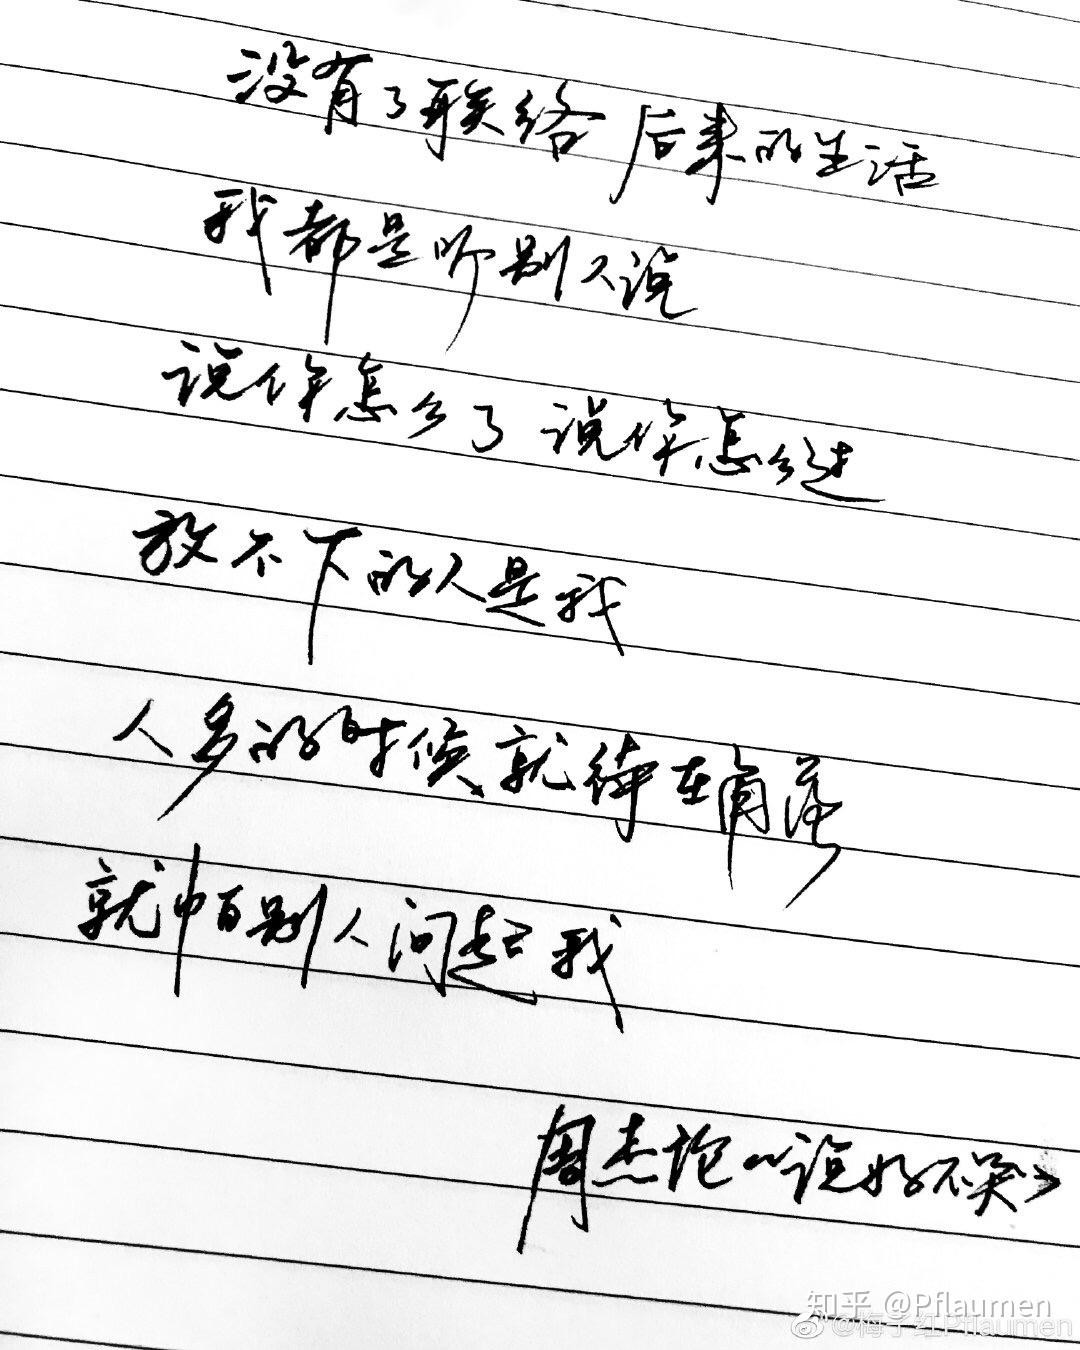 没有了联络 后来的生活
我都是听别人说
说你怎么了 说你怎么过
放不下的人是我
人多的时候就待在角落
就怕别人问起我
周杰伦《说好不哭》
知乎 @Pflaumen
@梅子红Pflaumen